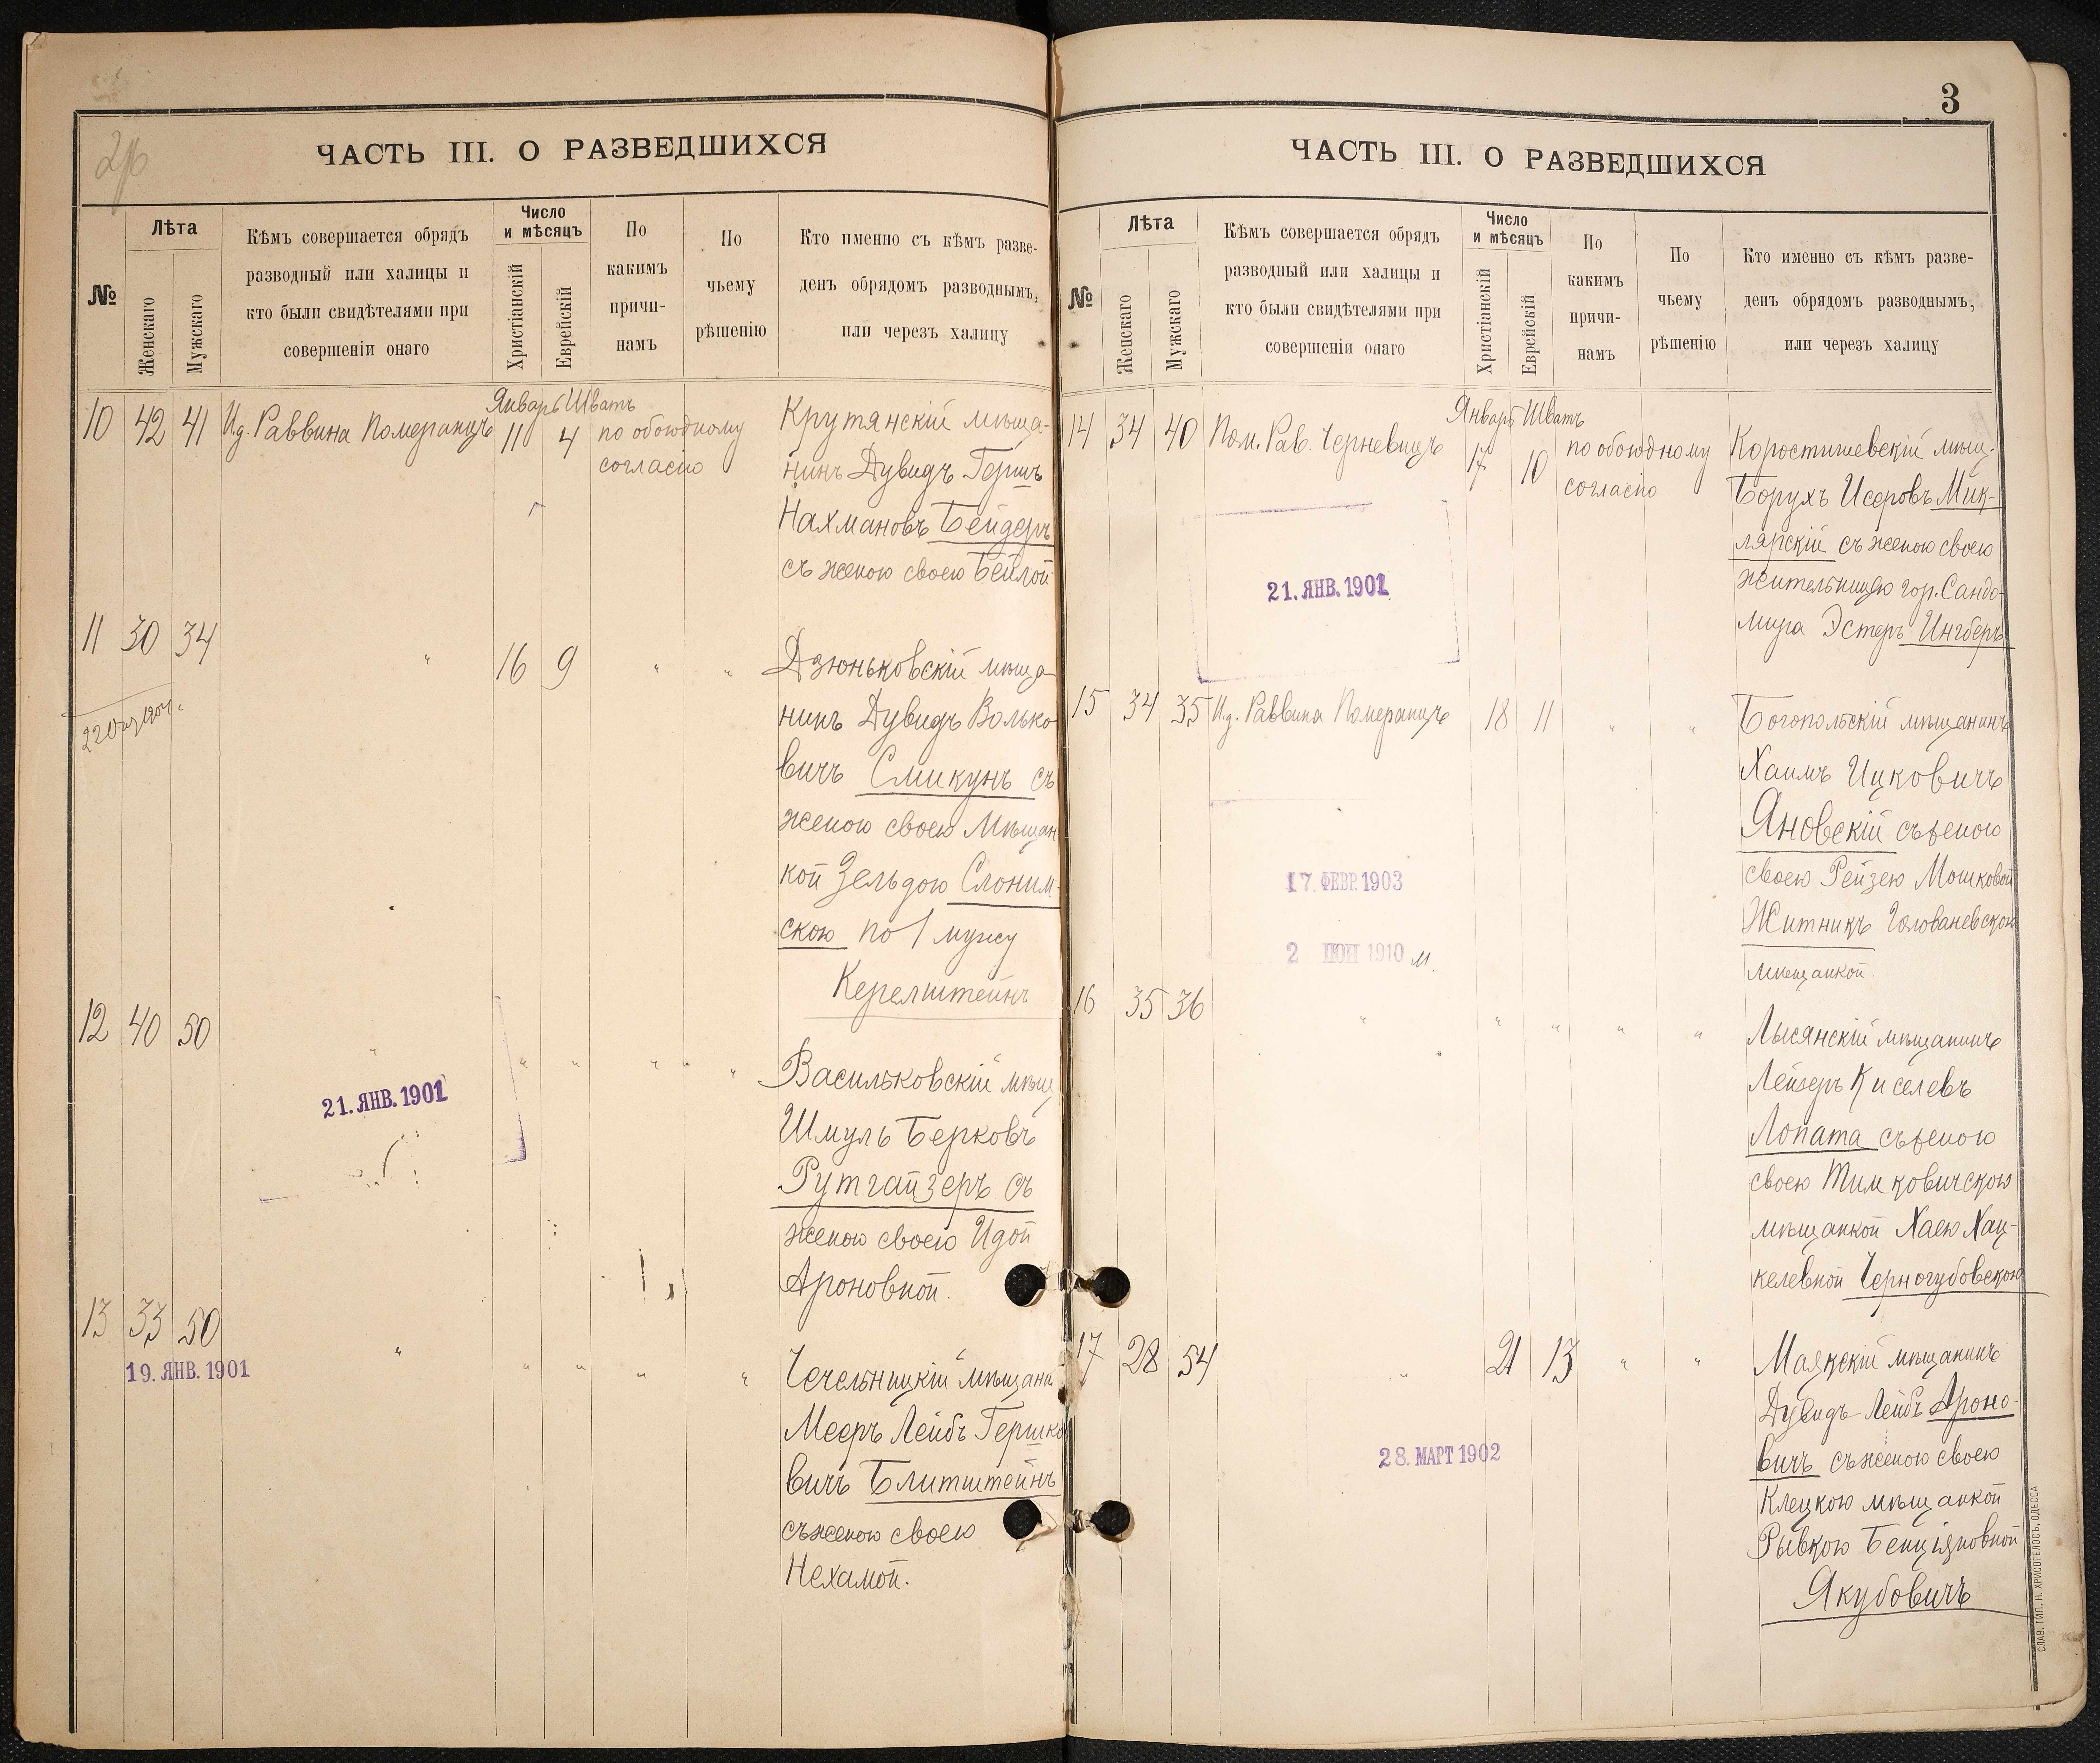 2об
ЧАСТЬ III. О РАЗВЕДШИХСЯ
№
Лѣта
Женскаго
Мужскаго
Кѣмъ совершается обрядъ
разводный или халицы и
кто были свидѣтелями при
совершеніи онаго
Число
и мѣсяцъ
Христіанскій
Еврейскій
По
какимъ
причи-
намъ
По
чьему
рѣшенію
Кто именно съ кѣмъ разве-
денъ обрядомъ разводнымъ,
или черезъ халицу
Январь Шватъ
10 42 41 И.д. Раввина Померанцъ 11 4 по обоюдному
согласію
Крутянскій мѣща-
нинъ Дувидъ Гершъ
Нахмановъ Бейдеръ
съ женою своею Бейлой
11 30 34 " 16 9 " "
Дзюньковскій мѣща-
нинъ Дувидъ Волько
вичъ Смикунъ съ
женою своею Мѣщан-
кой Зельдою Слоним-
скою по 1 мужу
Керелштейнъ
12 40 50 " " " " "
21. ЯНВ. 1901
Васильковскій мѣщ
Шмуль Берковъ
Рутгайзеръ съ
женою своею Идой
Ароновной.
13 33 50 " " " " "
19. ЯНВ. 1901
Чечельницкій мѣщани
Меэръ Лейбъ Гершко
вичъ Блитштейнъ
съ женою своею
Нехамой.
3
ЧАСТЬ III. О РАЗВЕДШИХСЯ
№
Лѣта
Женскаго
Мужскаго
Кѣмъ совершается обрядъ
разводный или халицы и
кто были свидѣтелями при
совершеніи онаго
Число
и мѣсяцъ
Христіанскій
Еврейскій
По
какимъ
причи-
намъ
По
чьему
рѣшенію
Кто именно съ кѣмъ разве-
денъ обрядомъ разводнымъ,
или черезъ халицу
Январь Шватъ
14 34 40 Пом. Рав. Черневицъ 17 10 по обоюдному
согласію
21. ЯНВ. 1901
Коростишевскій мѣщ.
Борухъ Исеровъ Мик-
лярскій съ женою своею
жительницею гор. Сандо-
мира Эстеръ Ингберъ
15 34 35 И.д. Раввина Померанцъ 18 11 " "
17. ФЕВР. 1903
2 ІЮН 1910 м.
Богопольскій мѣщанинъ
Хаимъ Ицковичъ
Яновскій съ женою
своею Рейзею Мошковой
Житникъ Голованевскою
мѣщанкой.
16 35 36 " " " " "
Лысянскій мѣщанинъ
Лейзеръ Киселевъ
Лопата съ женою
своею Тимковичскою
мѣщанкой Хаею Хац-
келевной Черногубовскою
17 28 54 " 21 13 " "
28. МАРТ 1902
Маякскій мѣщанинъ
Дувидъ-Лейбъ Ароно-
вичъ съ женою своею
Клецкою мѣщанкой
Рывкою Бенціяновной
Якубовичъ
СЛАВ. ТИП. Н. ХРИСОГЕЛОСЪ, ОДЕССА